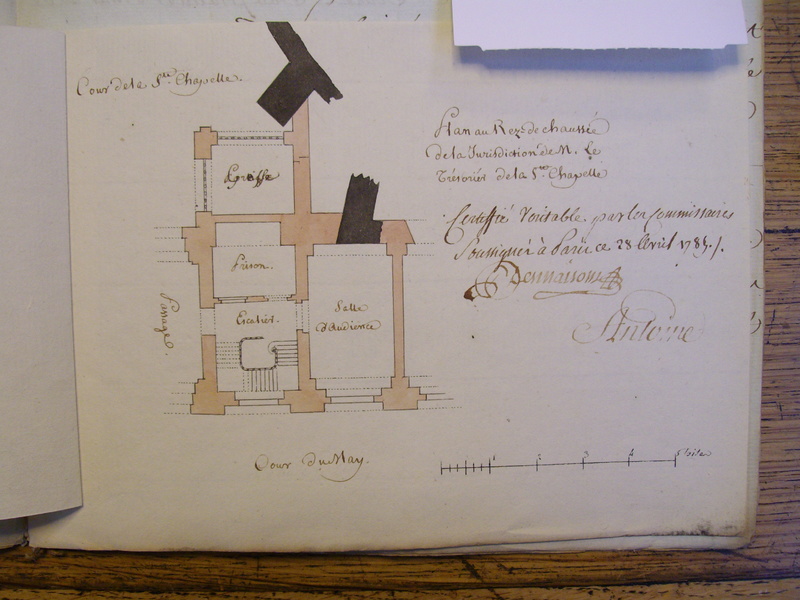 Cour de la Ste Chapelle.
Plan au Rez de chaussée
de la Jurisdiction de M. Le
Trésorier de la Ste Chapelle
Certiffié Veritable par les Commissaires
Soussignés à Paris ce 28 Avril 1785.
Desmaisons
Antoine
Greffe
Prison.
Escalier.
Salle
d'Audience
Passage.
Cour du May.
1 2 3 4 5 toises